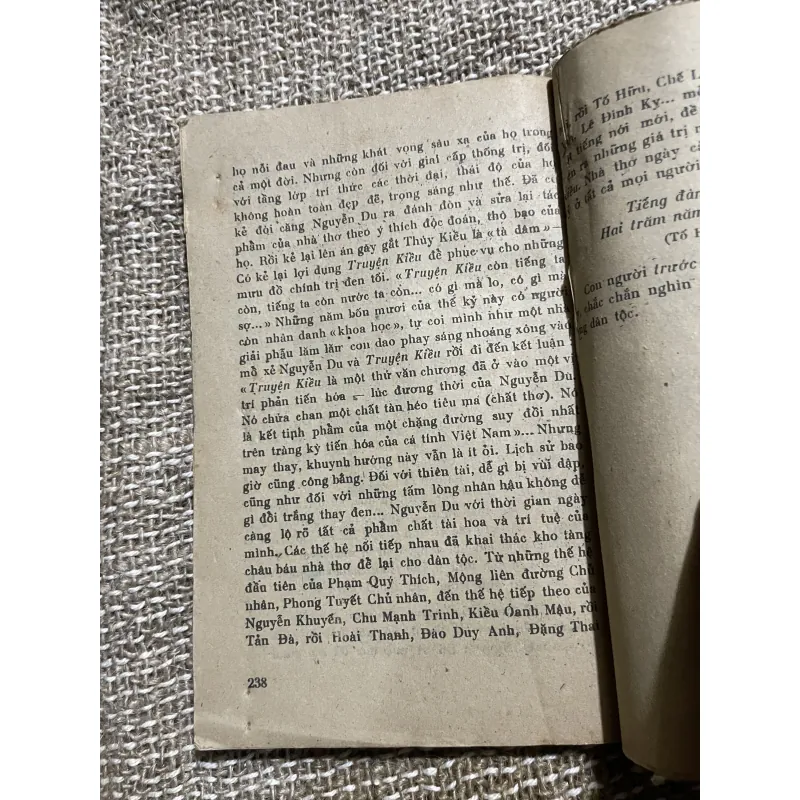 họ nỗi đau và những khát vọng sâu xa của họ trong
cả một đời. Nhưng còn đối với giai cấp thống trị, đối
với tầng lớp trí thức các thời đại, thái độ của họ
không hoàn toàn đẹp đẽ, trọng sáng như thế. Đã có
kẻ đòi căng Nguyễn Du ra đánh đòn và sửa lại tác
phẩm của nhà thơ theo ý thích độc đoán, thô bạo của
họ. Rồi kẻ lại lên án gay gắt Thúy Kiều là «tà dâm» –
Có kẻ lại lợi dụng Truyện Kiều để phục vụ cho những
mưu đồ chính trị đen tối. «Truyện Kiều còn tiếng ta
còn, tiếng ta còn nước ta còn... có gì mà lo, có gì mà
sợ...» Những năm bốn mươi của thế kỷ này có người
còn nhân danh «khoa học», tự coi mình như một nhà
giải phẫu lăm lăm con dao phay sáng nhoáng xông vào
mổ xẻ Nguyễn Du và Truyện Kiều rồi đi đến kết luận :
«Truyện Kiều là một thứ văn chương đã ở vào một vị
trí phản tiến hóa – lúc đương thời của Nguyễn Du.
Nó chứa chan một chất tàn héo tiêu ma (chất thơ). Nó
là kết tinh phẩm của một chặng đường suy đồi nhất
trên tràng kỳ tiến hóa của cá tính Việt Nam»... Nhưng
may thay, khuynh hướng này vẫn là ít ỏi. Lịch sử bao
giờ cũng công bằng. Đối với thiên tài, dễ gì bị vùi dập,
cũng như đối với những tấm lòng nhân hậu không dễ
gì đổi trắng thay đen... Nguyễn Du với thời gian ngày
càng lộ rõ tất cả phẩm chất tài hoa và trí tuệ của
mình. Các thế hệ nối tiếp nhau đã khai thác kho tàng
châu báu nhà thơ để lại cho dân tộc. Từ những thế hệ
đầu tiên của Phạm Quý Thích, Mộng liên đường Chủ
nhân, Phong Tuyết Chủ nhân, đến thế hệ tiếp theo của
Nguyễn Khuyến, Chu Mạnh Trinh, Kiều Oánh Mậu, rồi
Tản Đà, rồi Hoài Thanh, Đào Duy Anh, Đặng Thai
238
rồi Tố Hữu, Chế L
Lê Đình Kỵ... mỗ
tiếng nói mới, đề
ra những giá trị
Nhà thơ ngày cà
ở tất cả mọi người
Tiếng đàn
Hai trăm năm
(Tố H
Con người trước
chắc chắn nghìn
dân tộc.